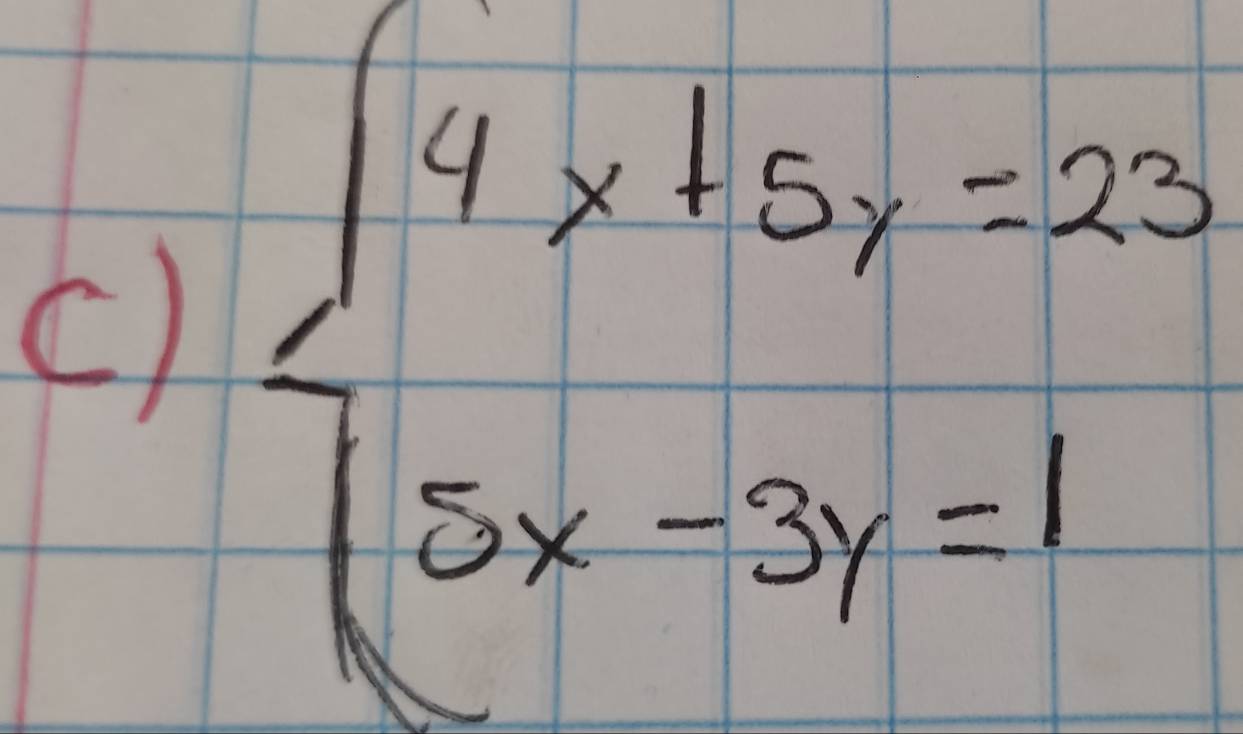 4x+5y=23
c)
5x-3y=1